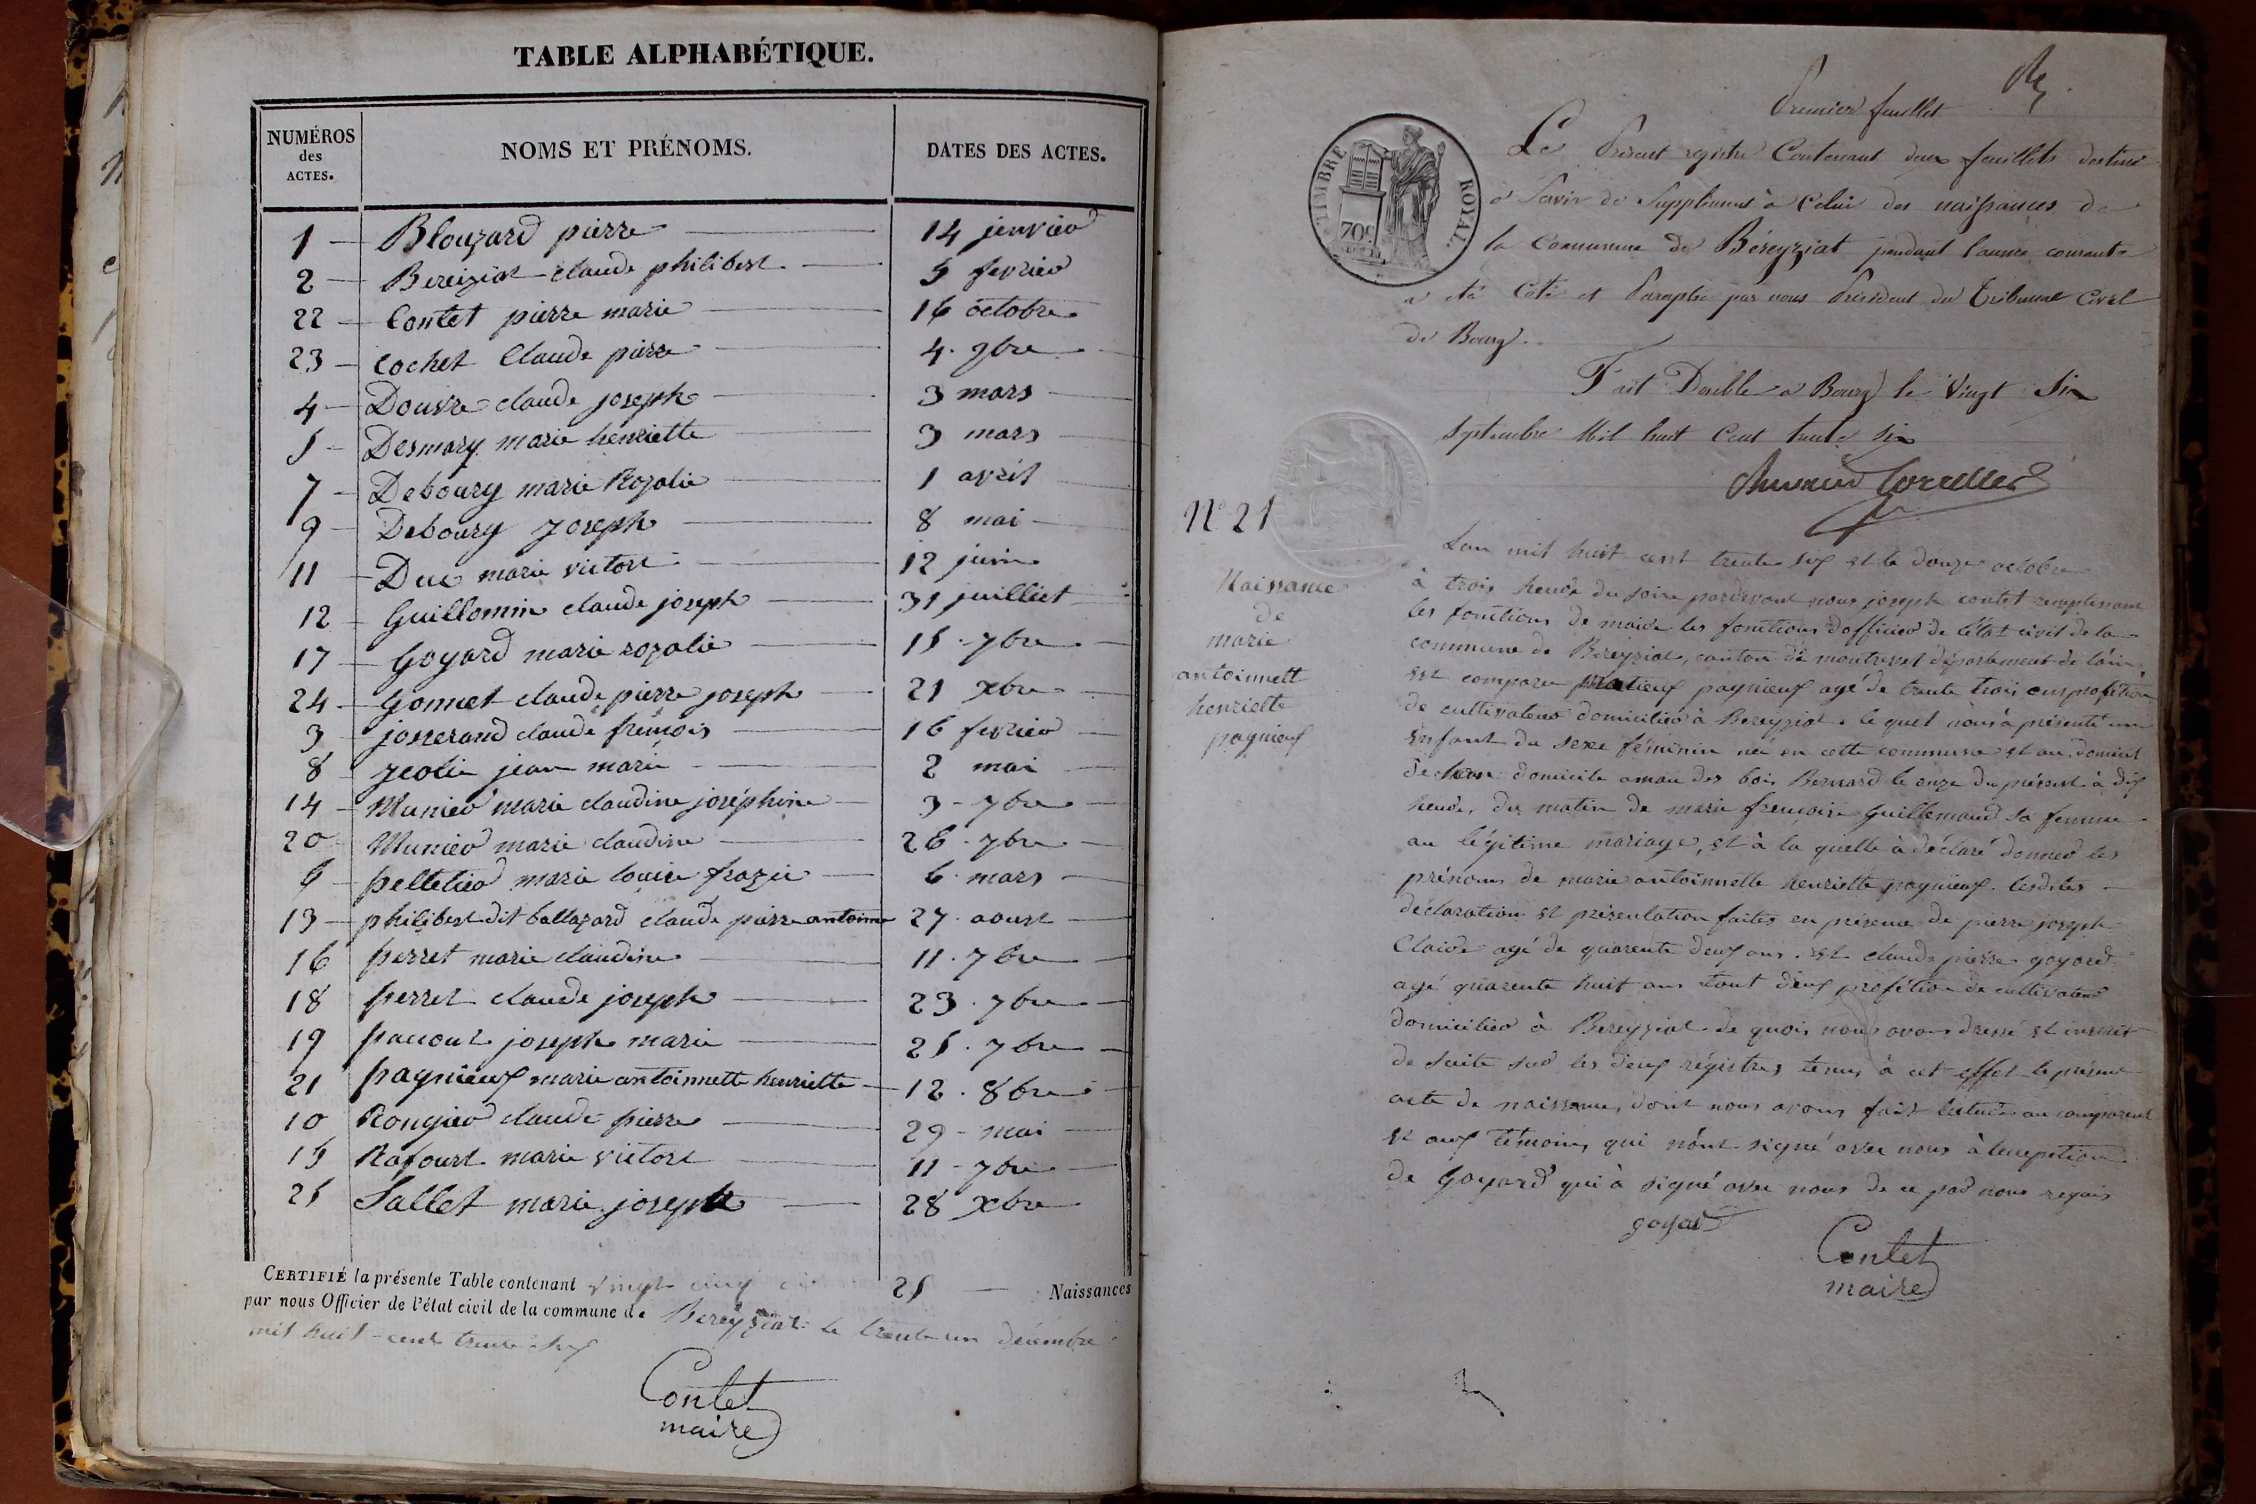 TABLE ALPHABÉTIQUE.
NUMÉROS des ACTES. NOMS ET PRÉNOMS. DATES DES ACTES.
1 — Blouzard pierre — 14 janvier
2 — Bereiziat claude philibert — 5 fevrier
22 — Contet pierre marie — 16 octobre
23 — Cochet Claude pierre — 4. 9bre
4 — Douvre claude joseph — 3 mars
5 — Desmary marie henriette — 3 mars
7 — Debourg marie Rozalie — 1 avril
9 — Debourg Joseph — 8 mai
11 — Duc marie victore — 12 juin
12 — Guillomin claude joseph — 31 juilliet
17 — Goyard marie rozalie — 15. 7bre
24 — Gonnet claude pierre joseph — 21 xbre
3 — josserand claude francois — 16 fevrier
8 — jeolie jean marie — 2 mai
14 — Munier marie claudine joséphine — 3 - 7bre
20 Munier marie claudine — 26. 7bre
6 — pelletier marie louise frazie — 6. mars
13 — philibert dit ballazard claude pierre antoine 27. aoust
16 perret marie claudine — 11. 7bre
18 perret claude joseph — 23. 7bre
19 pacout joseph marie — 25. 7bre
21 pagnieux marie antoinnette henriette — 12. 8bre
10 Rongier claude pierre — 29 - mai
15 Rafourt marie victore — 11 - 7bre
25 Sallet marie joseph — 28 xbre
CERTIFIÉ la présente Table contenant vingt cinq 25 — Naissances
par nous Officier de l'état civil de la commune de Bereyziat le trente un décembre
mil huit-cent trente six
Contet
maire
Premier feuillet
TIMBRE ROYAL.
70c
Le Présent registre Contenant deux feuillets destiné
à Servir de Supplément à Celui des naissances de
la Commune de Béreyziat pendant l'année courante
a été Coté et Paraphé par nous Président du Tribunal Civil
de Bourg.
Fait Double a Bourg le Vingt Six
septembre Mil huit Cent trente six
N° 21
Naissance
de
marie
antoinnett
henriette
pagnieux
Lan mil huit cent trente six et le douze octobre
à trois heure du soire pardevant nous joseph contet remplissant
les fonctions de maire les fonctions d'officier de l'état civil de la
commune de Bereyziat, canton de montrevel département de l'ain,
est comparu pagnieux agé de trente trois ans profétion
de cultivateur domicilier à Bereyziat. le quel nous à présenté un
enfant du sexe féminin né en cette commune et au domicil
de domicile amau des bois Bernard le onze du présent à dix
heure, du matin de marie francoise Guillemaud sa femme
au légitime mariage, et à la quelle à déclaré donner les
prénoms de marie antoinnette henriette pagnieux. lesdites
déclaration et présentation faites en présence de pierre joseph
Claire agé de quarente deux ans. et claude pierre goyard
agé quarente huit ans tout deux profétion de cultivateur
domicilier à Bereyziat de quois nous avons dressé et inscrit
de suite sur les deux régistres tenus à cet effet le présent
acte de naissance, dont nous avons fait lecture au comparent
et aux témoins, qui n'ont signé avec nous à lexeption
de Goyard qui à signé avec nous de ce par nous requis
goyard
Contet
maire